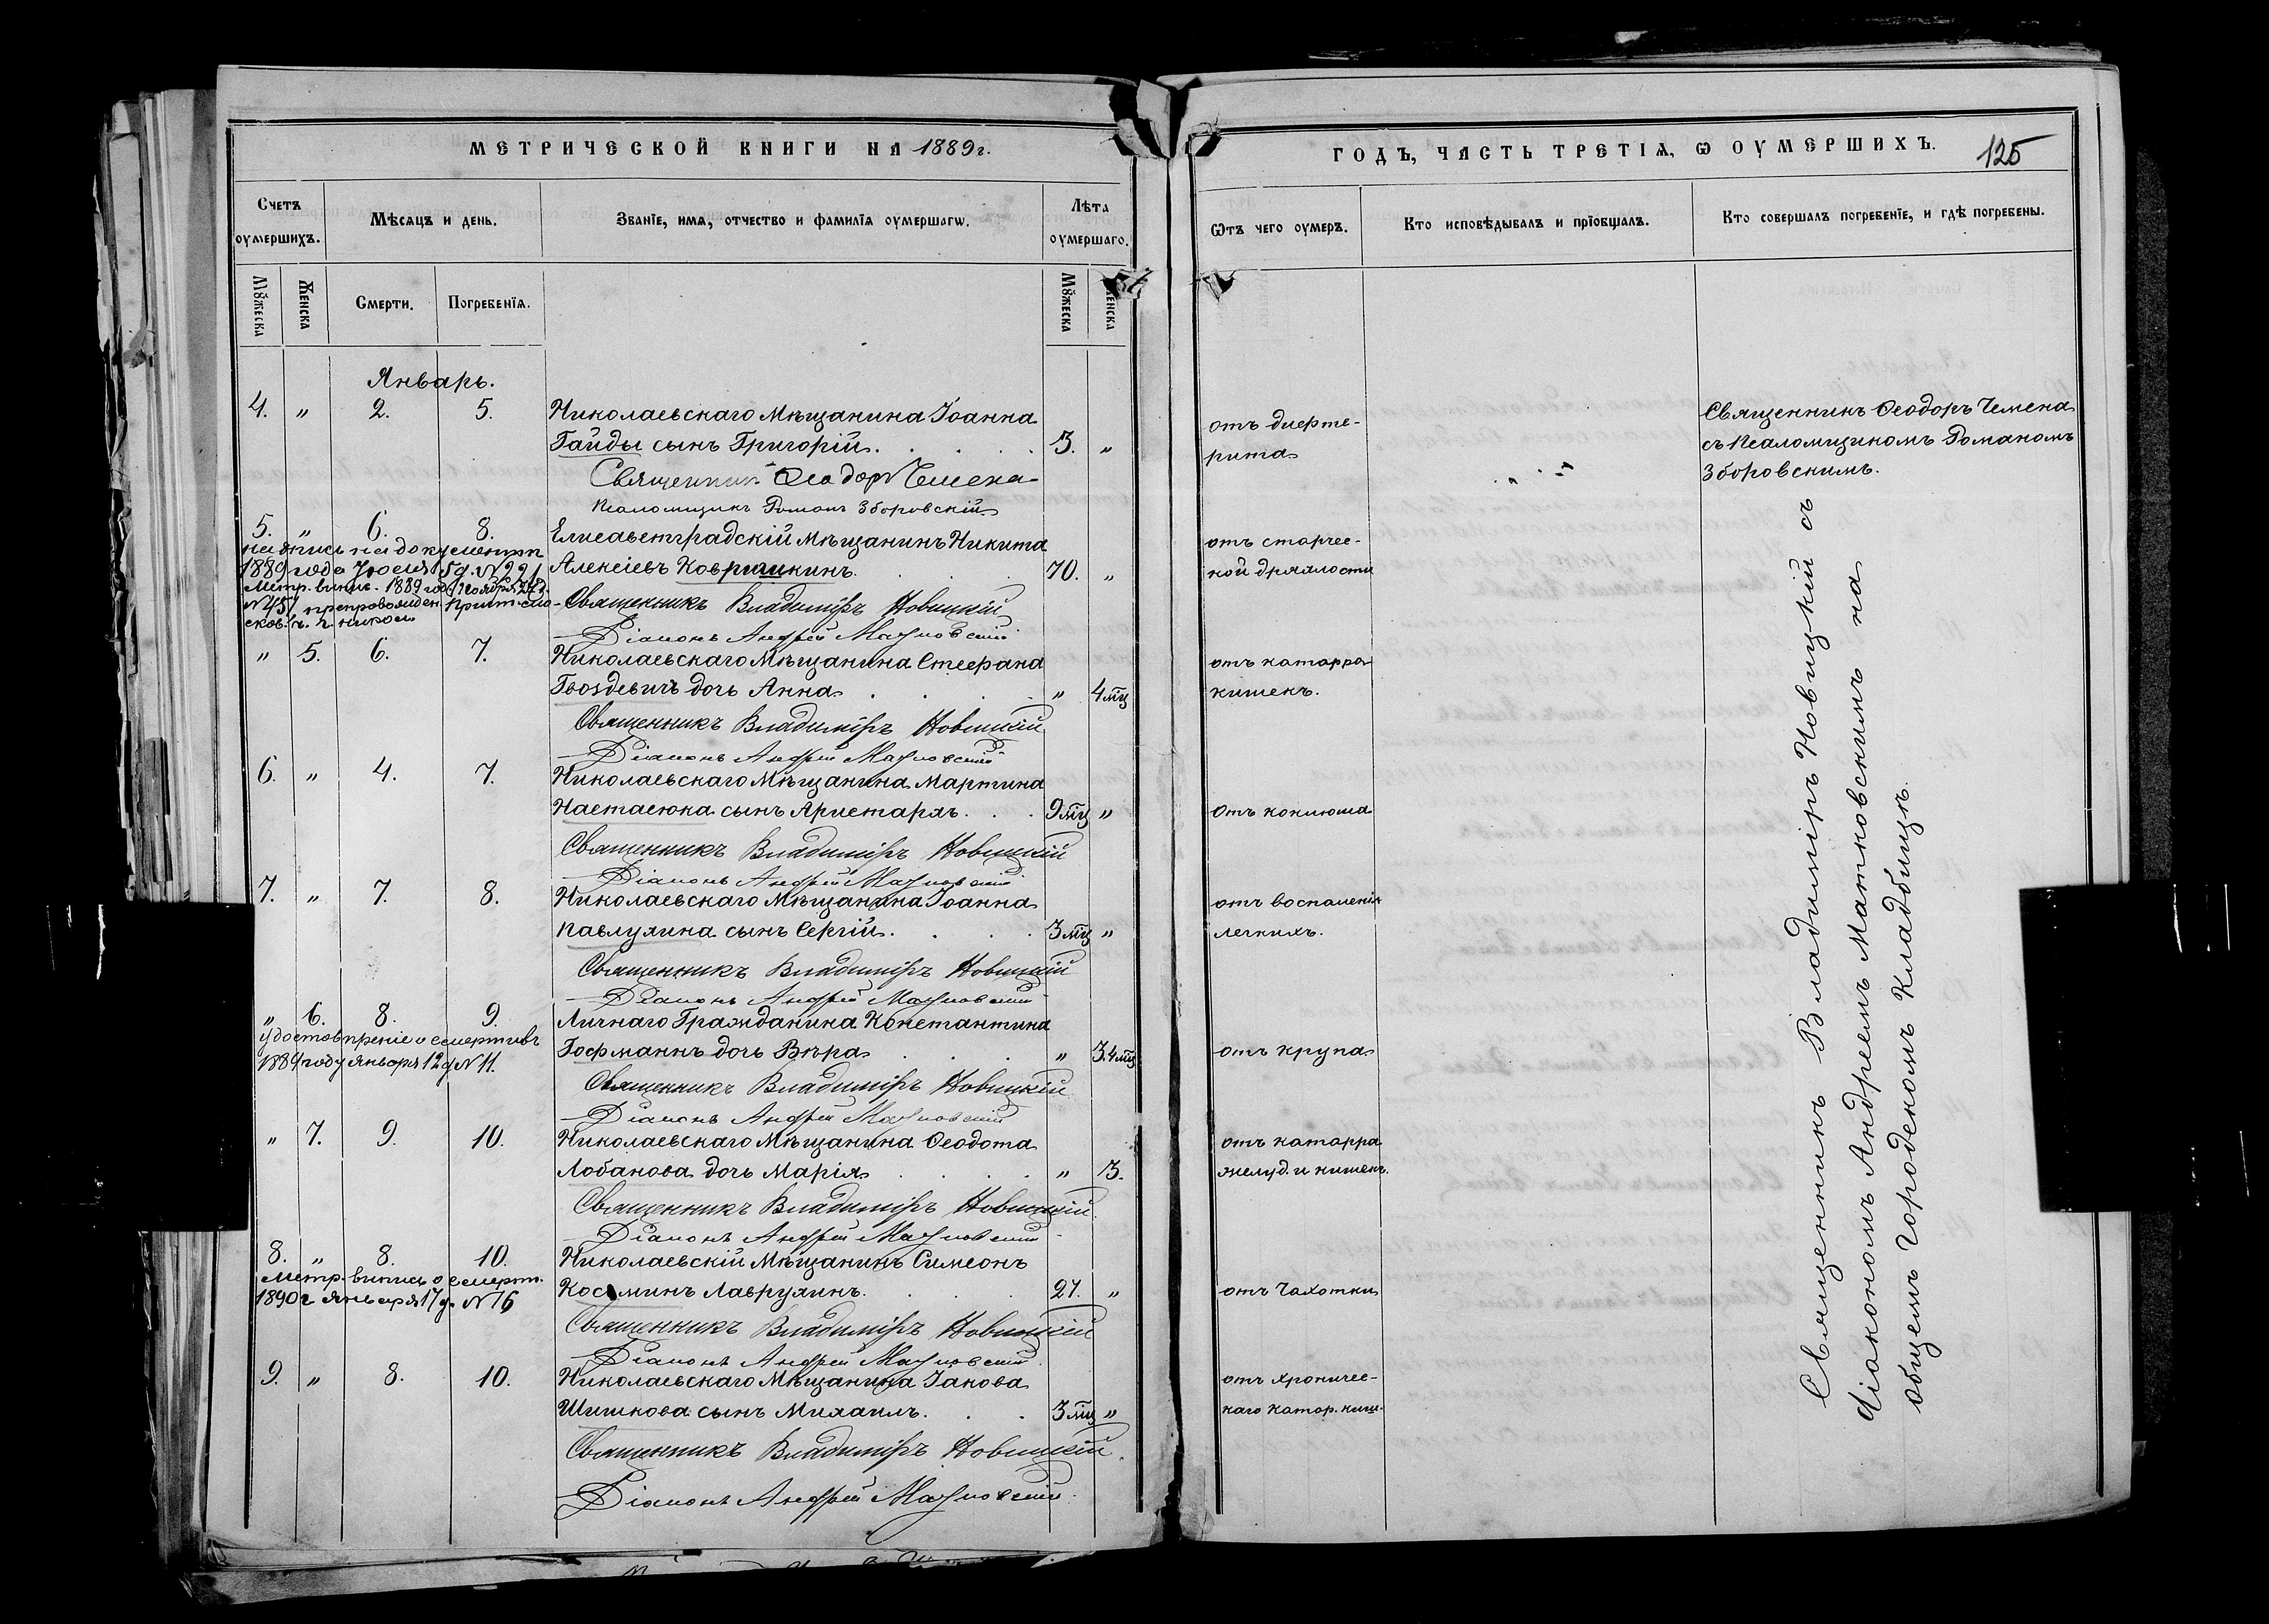 МЕТРИЧЕСКОЙ КНИГИ НА 1889 г.
Счетъ оумершихъ.
Мѣсяцъ и день.
Званіе, имя, отчество и фамилія оумершагѡ.
Лѣта оумершаго.
Мꙋжеска
Женска
Смерти.
Погребенія.
Мꙋжеска
Женска
Январь.
4. „ 2. 5. Николаевскаго Мѣщанина Іоанна
Гайды сынъ Григорій. 3. „
Священникъ Ѳеодоръ Чемена
Псаломщикъ Романъ Зборовскій
5. „ 6. 8. Елисаветградскій Мѣщанинъ Никита
надпись на документѣ
1889 года Іюля 15 д. № 221
Алексіевъ Ковришкинъ. 70. „
Метр. выпис. 1889 год. Ноября
№ 451 препровожден
Священникъ Владиміръ Новицкій
Діаконъ Андрей Матковскій
„ 5. 6. 7. Николаевскаго Мѣщанина Стефана
Гвоздевичъ дочь Анна. „ 4 мц
Священникъ Владиміръ Новицкій
Діаконъ Андрей Матковскій
6. „ 4. 7. Николаевскаго Мѣщанина Мартина
Настасюка сынъ Аристархъ. 9 мц „
Священникъ Владиміръ Новицкій
Діаконъ Андрей Матковскій
7. „ 7. 8. Николаевскаго Мѣщанина Іоанна
Павлухина сынъ Сергій. 3 мц „
Священникъ Владиміръ Новицкій
Діаконъ Андрей Матковскій
„ 6. 8. 9. Личнаго Гражданина Константина
удостовѣреніе о смерти въ
1889 году января 12 д № 11.
Гофманнъ дочь Вѣра „ 3. 4 мц
Священникъ Владиміръ Новицкій
Діаконъ Андрей Матковскій
„ 7. 9. 10. Николаевскаго Мѣщанина Ѳеодота
Лобанова дочь Марія „ 3.
Священникъ Владиміръ Новицкій
Діаконъ Андрей Матковскій
8. „ 8. 10. Николаевскій Мѣщанинъ Симеонъ
Метр. выпись о смерт.
1890 г января 17 д. № 16
Косминъ Лаврухинъ. 21. „
Священникъ Владиміръ Новицкій
Діаконъ Андрей Матковскій
9. „ 8. 10. Николаевскаго Мѣщанина Іакова
Шишкова сынъ Михаилъ. 3 мц „
Священникъ Владиміръ Новицкій
Діаконъ Андрей Матковскій
ГОДЪ, ЧАСТЬ ТРЕТІЯ, Ѡ ОУМЕРШИХЪ.
125
Ѿтъ чего оумеръ.
Кто исповѣдывалъ и пріобщалъ.
Кто совершалъ погребеніе, и гдѣ погребены.
отъ дифте-
рита
Священникъ Ѳеодоръ Чемена
съ Псаломщикомъ Романомъ
Зборовскимъ.
отъ старчес-
кой дряхлости
отъ катарра
кишекъ.
отъ коклюша
отъ воспаленія
легкихъ.
отъ крупа
отъ катарра
желуд. и кишекъ.
отъ Чахотки
отъ хроничес-
каго катар. киш.
Священникъ Владиміръ Новицкій съ
Діакономъ Андреемъ Матковскимъ на
общемъ Городскомъ кладбищѣ.